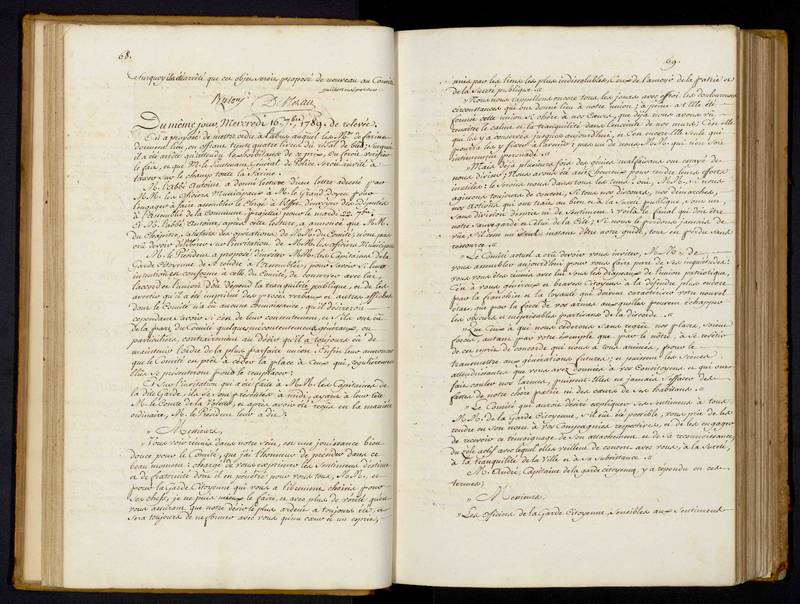 68.
Surquoy il a été arrêté que cet objet seroit proposé de nouveau au Comité
Du même jour Mercredi 16. 7bre 1789. de relevée.
Il a proposé de mettre ordre à l'abus auquel les Mds de farine
donnent lieu, en offrant trente quatre livres du rézal de bled; surquoi
il a été arrêté qu'attendu l'exorbitance de ce prix, on feroit vérifier
le fait, et que M. le Lieutenant Général de Police seroit invité à
taxer sur le champ toute la farine.
M. l'Abbé Antoine a donné lecture d'une lettre adressée par
M.M. les Officiers Municipaux à M. le Grand Doyen pour
l'engager à faire assembler le Clergé à l'effet d'envoyer des Députés
à l'Assemblée de la Commune projettée pour le mardi 22. 7bre
Et M. l'abbé Antoine, après cette lecture, a annoncé que M.M.
du Chapitre, satisfaits des opérations de M.M. du Comité, n'ont pas
cru devoir délibérer sur l'invitation de M.M. les Officiers Municipaux
M. le Président a proposé d'inviter M.M. les Capitaines de la
Garde Citoyenne de se rendre à l'assemblée, pour savoir si leur
intention est conforme à celle du Comité, de conserver avec lui,
l'accord et l'union d'où dépend la tranquilité publique, et de les
avertir qu'il a été imprimé des procès verbaux et autres affiches
dont le Comité n'a eu aucune connoissance, qu'il désireroit
cependant savoir si c'est de leur consentement, et s'ils ont eu
de la part du Comité quelques mécontentemens généraux, ou
particuliers, contrairement au désir qu'il a toujours eu de
maintenir l'ordre de la plus parfaite union. Enfin leur annoncer
que le Comité est prêt à céder la place à ceux qui, régulièrement
élus se présenteront pour le remplacer.
Et sur l'invitation qui a été faite à M.M. les Capitaines de
la dite Garde, ils se sont présentés à midi, ayant à leur tête
M. le Comte de la Valette, et après avoir été reçus en la manière
ordinaire, M. le Président leur a dit:
" Messieurs,
" Vous voir réunis dans notre sein, est une jouissance bien
douce pour le Comité, que j'ai l'honneur de présider dans ce
beau moment: chargé de vous exprimer les sentimens d'estime
et de fraternité dont il est pénétré pour vous tous, M.M. et
pour la Garde Citoyenne qui vous a librement choisis pour
ses chefs, je ne puis mieux le faire, et avec plus de vérité qu'en
vous assurant que notre désir le plus ardent a toujours été, et
sera toujours de ne former avec vous qu'un cœur et un esprit,
69.
unis par les liens les plus indissolubles, ceux de l'amour de la patrie et
de la sureté publique. "
" Nous nous rappellons encore tous les jours avec effroi les douloureuses
circonstances qui ont donné lieu à notre union: à peine a-t-elle été
formée cette union si chère à nos Cœurs, que déjà nous avons vû
renaître le calme et la tranquilité dans l'enceinte de nos murs; c'est elle
qui les y a conservés jusques aujourd'hui, et c'est encore elle seule qui
pourra les y fixer à l'avenir: pas un de nous M.M. qui n'en soit
intimement persuadé. "
" Mais déjà plusieurs fois des génies malfaisans ont essayé de
nous diviser; nous avons été assez heureux pour rendre leurs efforts
inutiles: le serons nous dans tous les tems? Oui, M.M. si nous
agissons toujours de concert, si tous nos discours, nos démarches,
nos actions qui ont trait au bien et à la sureté publique, sont un,
sans division d'esprit ni de sentiment: voila le fanal qui doit être
notre sauvegarde et celui de la Cité; si nous le perdons jamais de
vue, s'il cesse un seul instant d'être notre guide, tout est perdu sans
ressource. "
" Le Comité actuel a crû devoir vous inviter, M.M. de
vous assembler aujourd'hui pour vous faire part de ses inquiétudes:
vous vous êtes réunis avec lui sous les drapeaux de l'union patriotique,
c'est à vous généreux et braves citoyens à la défendre plus encore
par la franchise et la loyauté qui doivent caractériser votre nouvel
état, que par la force de vos armes auxquelles peuvent échapper
les obscurs et méprisables partisans de la discorde. "
" Que ceux à qui nous céderons sans regret nos places, soient
forcés, autant par votre exemple que par le nôtre, à se revêtir
de cet esprit de concorde qui nous a tous animés, pour le
transmettre aux générations futures; et puissent les scenes
attendrissantes que vous avez données à vos Concitoyens et qui ont
fait couler nos larmes, puissent-elles ne jamais s'effacer des
fastes de notre chere patrie ni des cœurs de ses habitans. "
" Le Comité qui auroit désiré expliquer ses sentimens à tous
M.M. de la Garde Citoyenne, s'il eut été possible, vous prie de les
rendre en son nom à vos Compagnies respectives, et de les engager
de recevoir ce témoignage de son attachement et de sa reconnoissance
du zèle actif avec lequel elles veillent de concert avec vous, à la sureté,
à la tranquilité de la Ville et à sa subsistance. "
M. André, Capitaine de la garde citoyenne, y a répondu en ces
termes;
" Messieurs,
" Les officiers de la Garde Citoyenne, sensibles aux sentimens